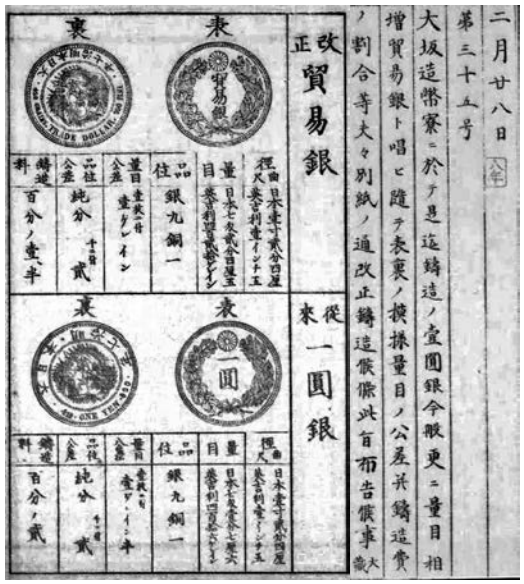 二月廿八日 八年
第三十五号
大坂造幣寮ニ於テ是迄鋳造ノ壹圓銀今般更ニ量目相
増貿易銀ト唱ヒ隨テ表裏ノ摸様量目ノ公差并鋳造費
ノ割合等夫々別紙ノ通改正鋳造候條此旨布告候事 大蔵
改正 貿易銀
表
貿易銀
裏
TRADE DOLLAR
徑曲尺
日本壹寸貳分四厘
英吉利壹インチ五
量目
日本七匁貳分四厘
英吉利四百貳拾グレイン
品位
銀九銅一
量目公差
壹枚ニ付
壹グレイン
品位公差
純分 千ニ付 貳
鋳造料
百分ノ壹、半
從來 一圓銀
表
一圓
裏
416・ONE YEN・900
徑曲尺
日本壹寸貳分四厘
英吉利壹インチ五
量目
日本七匁壹分七厘六
英吉利四百拾六グレイン
品位
銀九銅一
量目公差
壹枚ニ付
壹グレイン半
品位公差
純分 千ニ付 貳
鋳造料
百分ノ貳